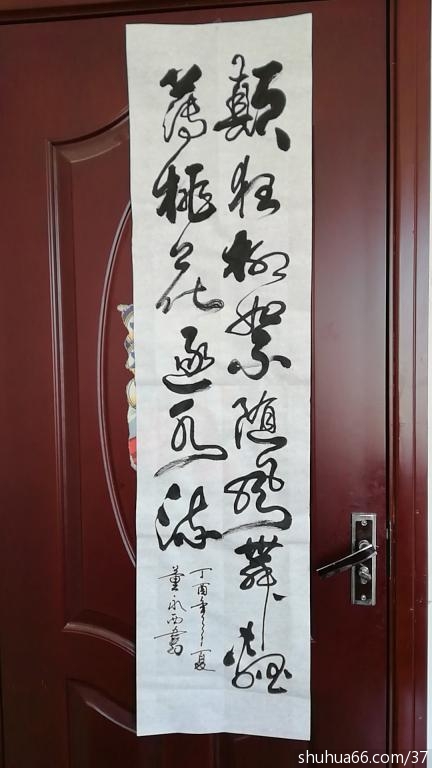 顛狂柳絮随風舞輕
薄桃花逐水流
丁酉年夏
董永西書
shuhua66.com/37